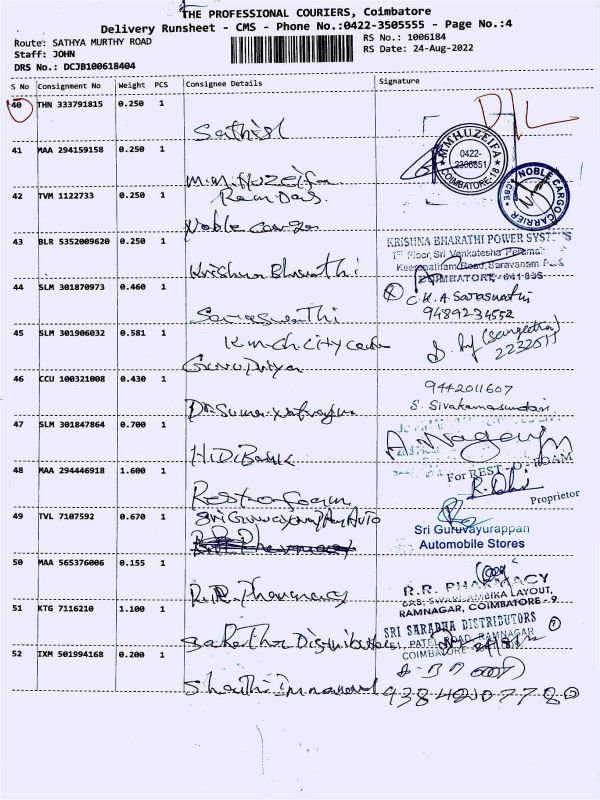 THE PROFESSIONAL COURIERS, Coimbatore
Delivery Runsheet - CMS - Phone No.:0422-3505555 - Page No.:4
Route: SATHYA MURTHY ROAD
Staff: JOHN
DRS No.: DCJB100618404
RS No.: 1006184
RS Date: 24-Aug-2022
S No Consignment No Weight PCS Consignee Details Signature
40 THN 333791815 0.250 1
Sathish
D/L
41 MAA 294159158 0.250 1
M.M.Huzeifa
M.M.HUZEIFA
0422-
COIMBATORE-18
42 TVM 1122733 0.250 1
Ramdas
Noble cargo
NOBLE CARGO CARRIER
CBE
43 BLR 5352009620 0.250 1
Krishna Bharathi
KRISHNA BHARATHI POWER SYSTEMS
1st Floor, Sri Venkatesha Perumal
Road, Saravanam
COIMBATORE - 641 035
44 SLM 301870973 0.460 1
Saraswathi
C.K.A. Saraswathi
9489234552
45 SLM 301906032 0.581 1
Kmch city
Gurupriya
(Sangeetha)
46 CCU 100321008 0.430 1
Dr Suma
9442011607
S. Sivakamasundari
47 SLM 301847864 0.700 1
48 MAA 294446918 1.600 1
Rest-o-foam
For REST-O-FOAM
Proprietor
49 TVL 7107592 0.670 1
Sri Guruvayurappan Auto
Sri Guruvayurappan
Automobile Stores
50 MAA 565376006 0.155 1
R.R. Pharmacy
R.R. PHARMACY
LAYOUT,
RAMNAGAR, COIMBATORE - 9
51 KTG 7116210 1.100 1
Distributors
SRI SARADHA DISTRIBUTORS
PATEL ROAD, RAMNAGAR
COIMBATORE
52 IXM 501994168 0.200 1
Shanthi